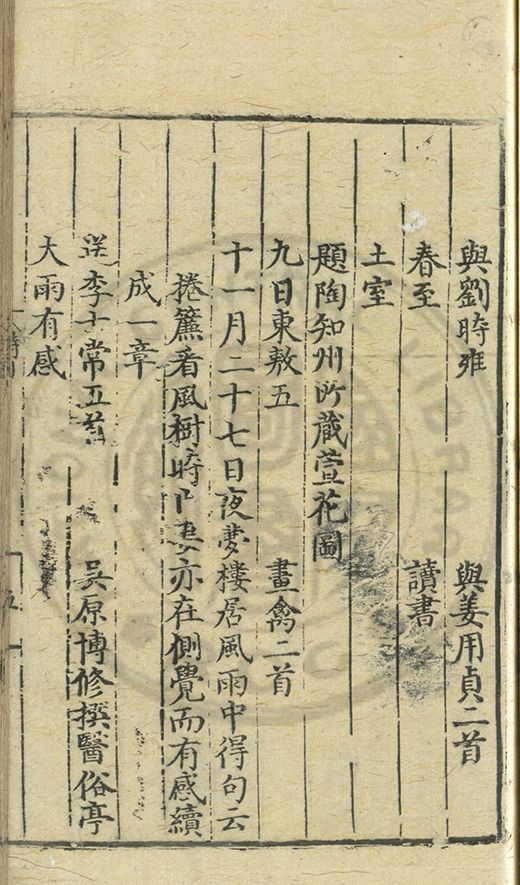 與劉時雍　與姜用貞二首
春至　讀書
土室
題陶知州所藏萱花圖
九日東敖五　畫禽二首
十一月二十七日夜夢樓居風雨中得句云
捲簾看風樹時亡妻亦在側覺而有感續
成一章
送李士常五首　吳原博修撰醫俗亭
大雨有感